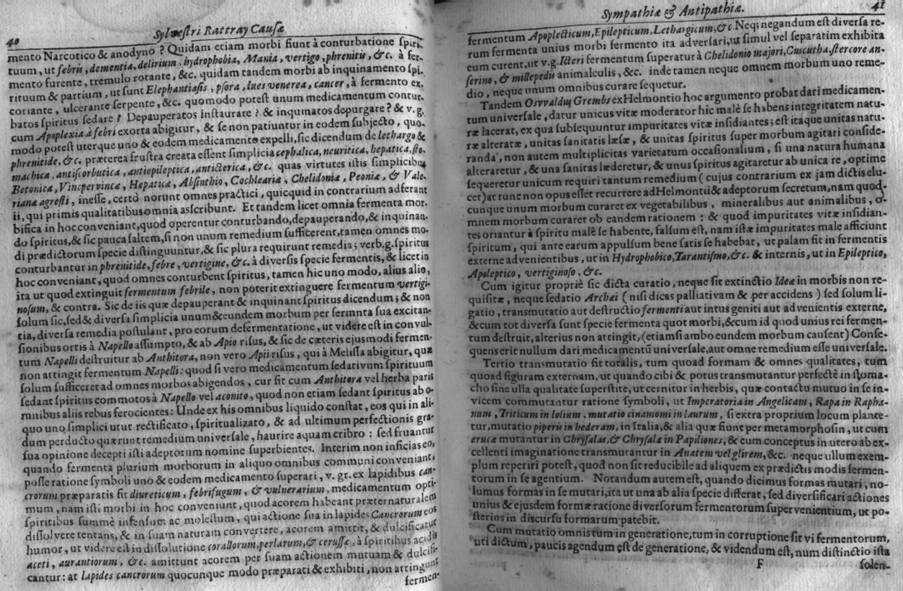 40 Sylvestri Rattray Causæ
mento Narcotico & anodyno ? Quidam etiam morbi fiunt à conturbatione spiri-
tuum, ut febris, dementia, delirium, hydrophobia, Mania, vertigo, phrenitis, &c. à fer-
mento furente, tremulo rotante, &c. quidam tandem morbi ab inquinamento spi-
rituum & partium, ut sunt Elephantiasis, psora, lues venerea, cancer, à fermento ex-
coriante, ulcerante serpente, &c. quomodo potest unum medicamentum contur-
batos spiritus sedare ? Depauperatos Instaurare ? & inquinatos depurgare ? & v.g.
cum Apoplexia à febri exorta abigitur, & se non patiuntur in eodem subjecto, quo-
modo potest uterque uno & eodem medicamento expelli, sic dicendum de lethargo &
phrenitide, &c. præterea frustra creata essent simplicia cephalica, neuritica, hepatica, sto-
machica, antiscorbutica, antiepileptica, anticterica, &c. quas virtutes istis simplicibus
Betonica, Vincpervince, Hepatica, Absinthio, Cochlearia, Chelidonia, Peonia, & Vale-
riana agresti, inesse, certò norunt omnes practici, quicquid in contrarium adferant
ii, qui primis qualitatibus omnia ascribunt. Et tandem licet omnia fermenta mor-
bifica in hoc conveniant, quod operentur conturbando, depauperando, & inquinan-
do spiritus, & sic pauca saltem, si non unum remedium sufficerent, tamen omnes mo-
di prædictorum specie distinguuntur, & sic plura requirunt remedia; verb.g. spiritus
conturbantur in phrenitide, febre, vertigine, &c. à diversis specie fermentis, & licet in
hoc conveniant, quod omnes conturbent spiritus, tamen hic uno modo, alius alio,
ita ut quod extinguit fermentum febrile, non poterit extinguere fermentum vertigi-
nosum, & contra. Sic de iis quæ depauperant & inquinant spiritus dicendum; & non
solum sic, sed & diversa simplicia unum & eundem morbum per fermnta sua excitan-
tia, diversa remedia postulant, pro eorum defermentatione, ut videre est in convul-
sionibus ortis à Napello assumpto, & ab Apio risus, & sic de cæteris ejusmodi fermen-
tum Napelli destruitur ab Anthitora, non vero Apii risus, qui à Melissa abigitur, quæ
non attingit fermentum Napelli: quod si vero medicamentum sedativum spirituum
solum sufficeret ad omnes morbos abigendos, cur sit cum Anthitora vel herba paris
sedant spiritus commotos à Napello vel aconito, quod non etiam sedant spiritus ab o-
mnibus aliis rebus ferocientes: Unde ex his omnibus liquido constat, eos qui in ali-
quo uno simplici utut rectificato, spiritualizato, & ad ultimum perfectionis gra-
dum perducto quærunt remedium universale, haurire aquam cribro : sed fruantur
sua opinione decepti isti adeptorum nomine superbientes. Interim non inficias eo,
quando fermenta plurium morborum in aliquo omnibus communi conveniant,
posse ratione symboli uno & eodem medicamento superari, v. gr. ex lapidibus can-
crorum præparatis fit diureticum, febrifugum, & vulnerarium, medicamentum opti-
mum, nam isti morbi in hoc conveniunt, quod acorem habeant præternaturalem
spiritibus summè infensum ac molestum, qui actione sua in lapides Cancrorum eos
dissolvere tentans, & in suam naturam convertere, acorem amittit, & dulcificatur
humor, ut videre est in dissolutione corallorum, perlarum, & cerussæ, à spiritibus acidis
aceti, aurantiorum, &c. amittunt acorem per suam actionem mutuam & dulcifi-
cantur: at lapides cancrorum quocunque modo præparati & exhibiti, non attingunt
fermen-
Sympathiæ & Antipathiæ. 41
fermentum Apoplecticum, Epilepticum, Lethargicum, &c. Neq; negandum est diversa re-
rum fermenta unius morbi fermento ita adversari, ut simul vel separatim exhibita
eum curent, ut v.g. Icteri fermentum superatur à Chelidonio majori, Cuscutha, stercore an-
serino, & millepedis animalculis, &c. inde tamen neque omnem morbum uno reme-
dio, neque unum omnibus curare sequetur.
Tandem Osvvaldus Grembs ex Helmontio hoc argumento probat dari medicamen-
tum universale, datur unicus vitæ moderator hic malè se habens integritatem natu-
ræ lacerat, ex qua subsequuntur impuritates vitæ insidiantes; est itaque unitas natu-
ræ alteratæ, unitas sanitatis læsæ, & unitas spiritus super morbum agitari conside-
randa, non autem multiplicitas varietatum occasionalium, si una natura humana
alteraretur, & una sanitas læderetur, & unus spiritus agitaretur ab unica re, optime
sequeretur unicum requiri tantum remedium ( cujus contrarium ex jam dictis elu-
cet) at tunc non opus esset recurrere ad Helmontii & adeptorum secretum, nam quod-
cunque unum morbum curaret ex vegetabilibus, mineralibus aut animalibus, o-
mnem morbum curaret ob eandem rationem : & quod impuritates vitæ insidian-
tes oriantur à spiritu malè se habente, falsum est, nam istæ impuritates male afficiunt
spiritum, qui ante earum appulsum bene satis se habebat, ut palam fit in fermentis
externe advenientibus, ut in Hydrophobico, Tarantismo, &c. & internis, ut in Epileptico,
Apoleptico, vertiginoso, &c.
Cum igitur propriè sic dicta curatio, neque sit extinctio Ideæ in morbis non re-
quisitæ, neque sedatio Archæi ( nisi dicas palliativam & per accidens ) sed solum li-
gatio, transmutatio aut destructio fermenti aut intus geniti aut advenientis externe,
& cum tot diversa sunt specie fermenta quot morbi, & cum id quod unius rei fermen-
tum destruit, alterius non attingit, (etiamsi ambo eundem morbum causent) Conse-
quens erit nullum dari medicamentū universale, aut omne remedium esse universale.
Tertio transmutatio fit toralis, tum quoad formam & omnes qualitates, tum
quoad figuram externam, ut quando cibi & potus transmutantur perfectè in stoma-
cho sine ulla qualitate superstite, ut cernitur in herbis, quæ contactu mutuo in se in-
vicem commutantur ratione symboli, ut Imperatoria in Angelicam, Rapa in Rapha-
num, Triticum in lolium, mutatio cinamomi in laurum, si extra proprium locum plante-
tur, mutatio piperis in hederam, in Italia, & alia quæ fiunt per metamorphosin, ut cum
erucæ mutantur in Chrysalas, & Chrysalæ in Papiliones, & cum conceptus in utero ab ex-
cellenti imaginatione transmutantur in Anatem vel glirem, &c. neque ullum exem-
plum reperiri potest, quod non sit reducibile ad aliquem ex prædictis modis fermen-
torum in se agentium. Notandum autem est, quando dicimus formas mutari, no-
lumus formas in se mutari, ita ut una ab alia specie differat, sed diversificari actiones
unius & ejusdem formæ ratione diversorum fermentorum supervenientium, ut po-
sterius in discursu formarum patebit.
Cum mutatio omnis tum in generatione, tum in corruptione sit vi fermentorum,
uti dictum, paucis agendum est de generatione, & videndum est, num distinctio ista
F solen-